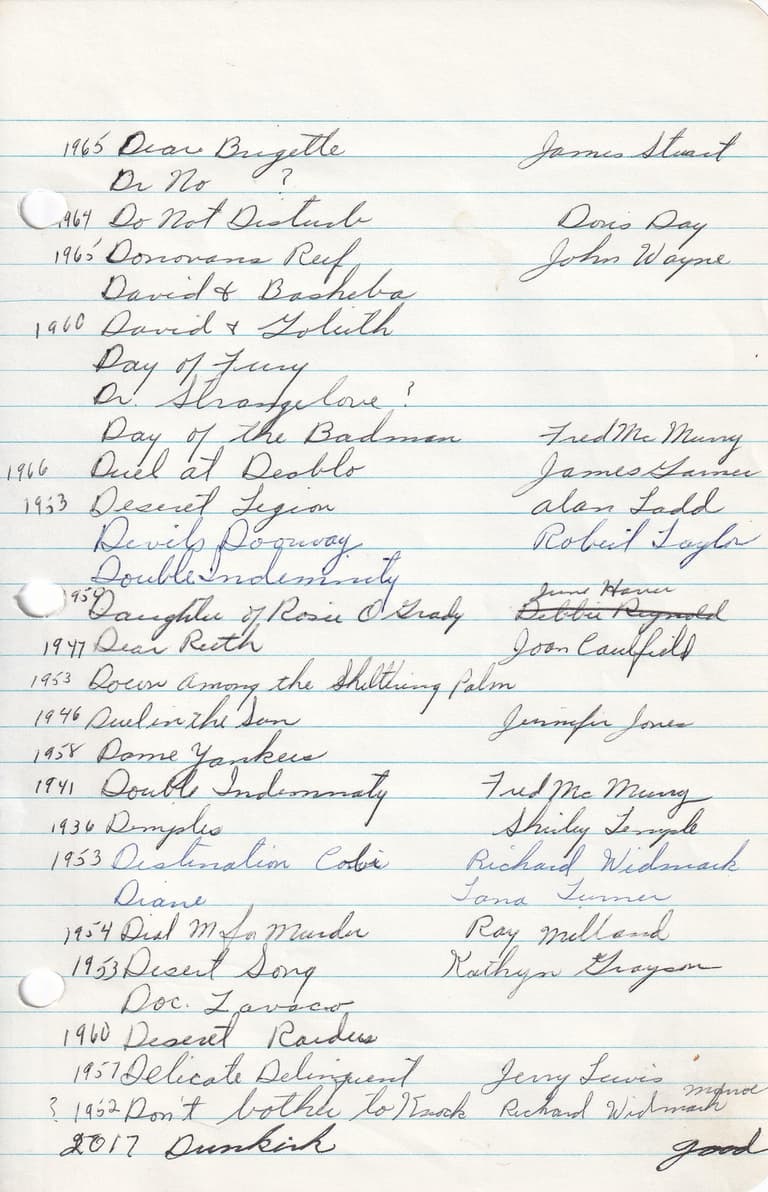 1965 Dear Brigette James Stuart
Dr No ?
1964 Do Not Disturb Doris Day
1965 Donovans Reef John Wayne
David & Basheba
1960 David & Goliith
Day of Fury
Dr. Strangelove ?
Day of the Badman Fred Mc Murry
1966 Duel at Deablo James Garner
1953 Deseret Legion Alan Ladd
Devils Doorway Robert Taylor
Double Indemnity
June Haver
195 Daughter of Rosie O Grady Debbie Reynold
1947 Dear Ruth Joan Caulfield
1953 Down among the Sheltering Palm
1946 Duel in the Sun Jennifer Jones
1958 Dame Yankees
1941 Double Indemnaty Fred Mc Murry
1936 Dimples Shirley Temple
1953 Destination Cobi Richard Widmark
Diane Lana Turner
1954 Dial M for Murder Ray Milland
1953 Desert Song Kathryn Grayson
Doc.
1960 Deseret Raiders
1957 Delicate Delinquent Jerry Lewis
monroe
? 1952 Don't bother to Knock Richard Widmark
2017 Dunkirk good